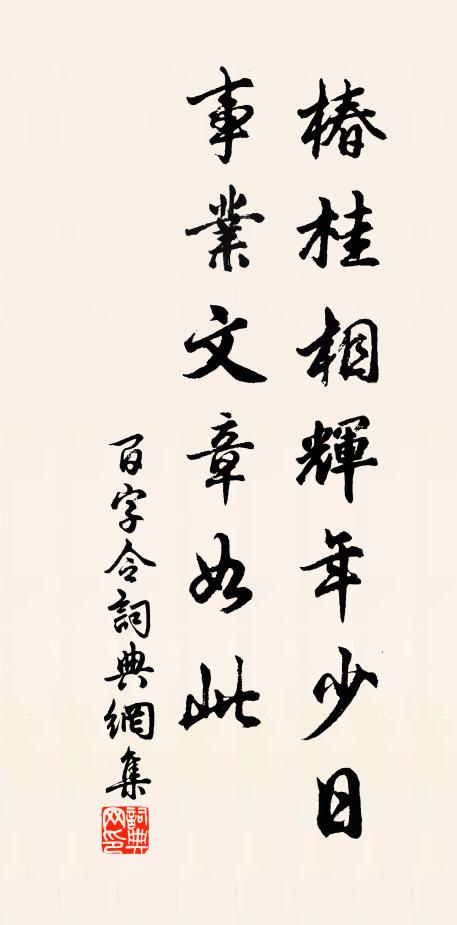 椿桂相輝年少日
事業文章如此
百字令詞典網集
詞典网印